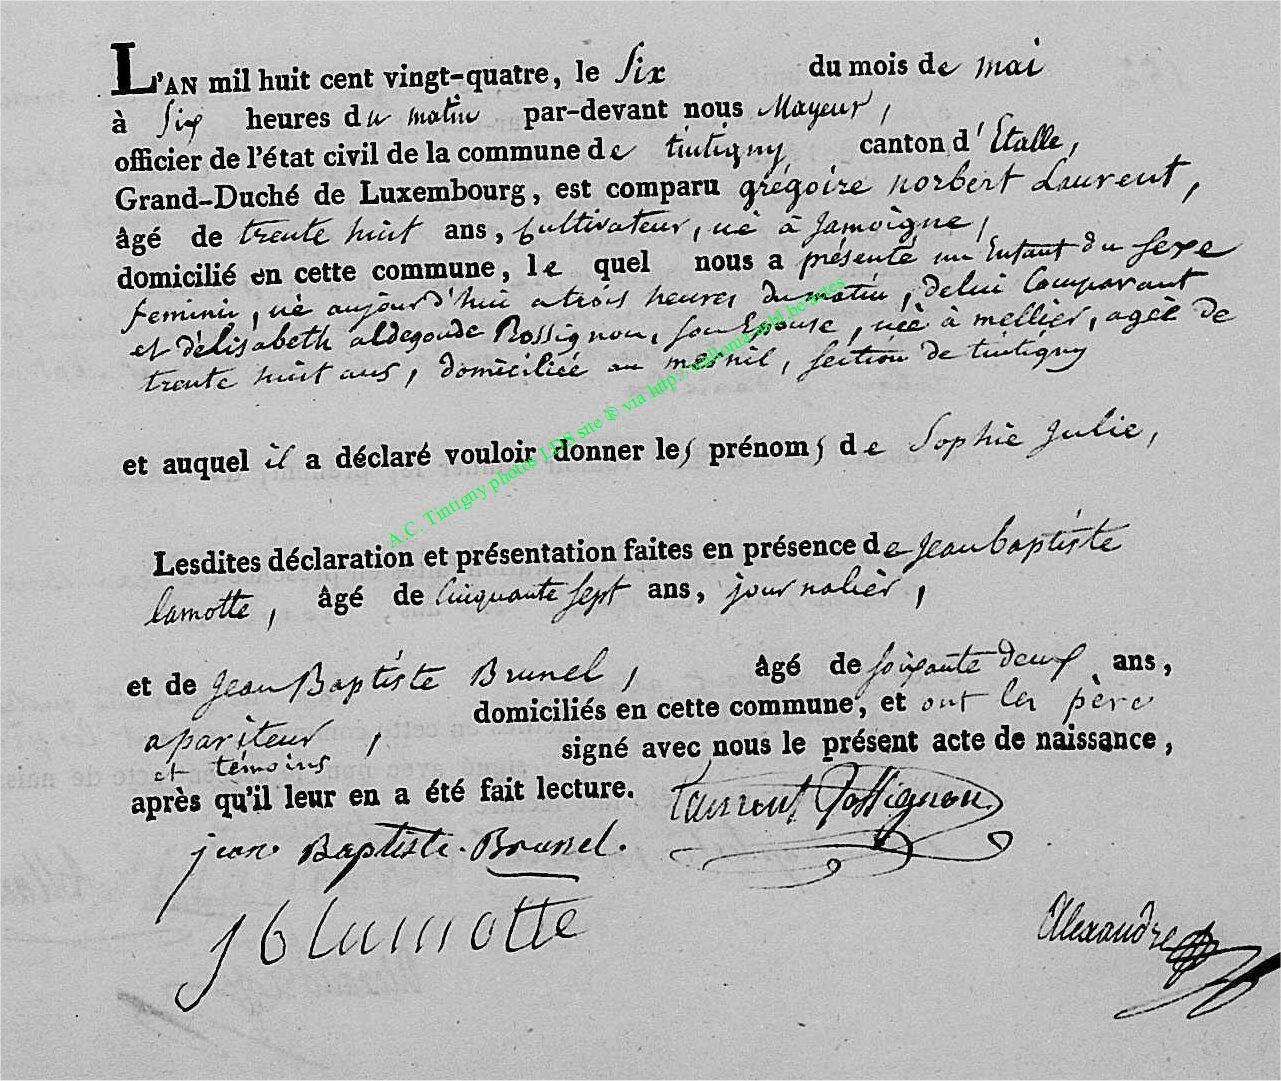 L'AN mil huit cent vingt-quatre, le Six du mois de mai
à Six heures du matin par-devant nous Mayeur,
officier de l'état civil de la commune de tintigny canton d'Etalle,
Grand-Duché de Luxembourg, est comparu grégoire norbert Laurent,
âgé de trente huit ans, Cultivateur, né à Jamoigne,
domicilié en cette commune, le quel nous a présenté un Enfant du Sexe
feminin, né aujourd'hui a trois heures du matin, de lui Comparant
et d'élisabeth aldegonde Rossignon, son Epouse, néé à mellier, agéé de
trente huit ans, domiciliéé au mesnil, section de tintigny
et auquel il a déclaré vouloir donner les prénoms de Sophie Julie,
Lesdites déclaration et présentation faites en présence de Jean baptiste
lamotte, âgé de Cinquante sept ans, journalièr,
et de Jean Baptiste Brunel, âgé de soixante deux ans,
apariteur, domiciliés en cette commune, et ont les père
et témoins signé avec nous le présent acte de naissance,
après qu'il leur en a été fait lecture.
Laurent Rossignon
jean Baptiste Brunel.
J b lamotte
Alexandre
A.C. Tintigny photos LDS site ® via http://wallonia.asbl.be-actes